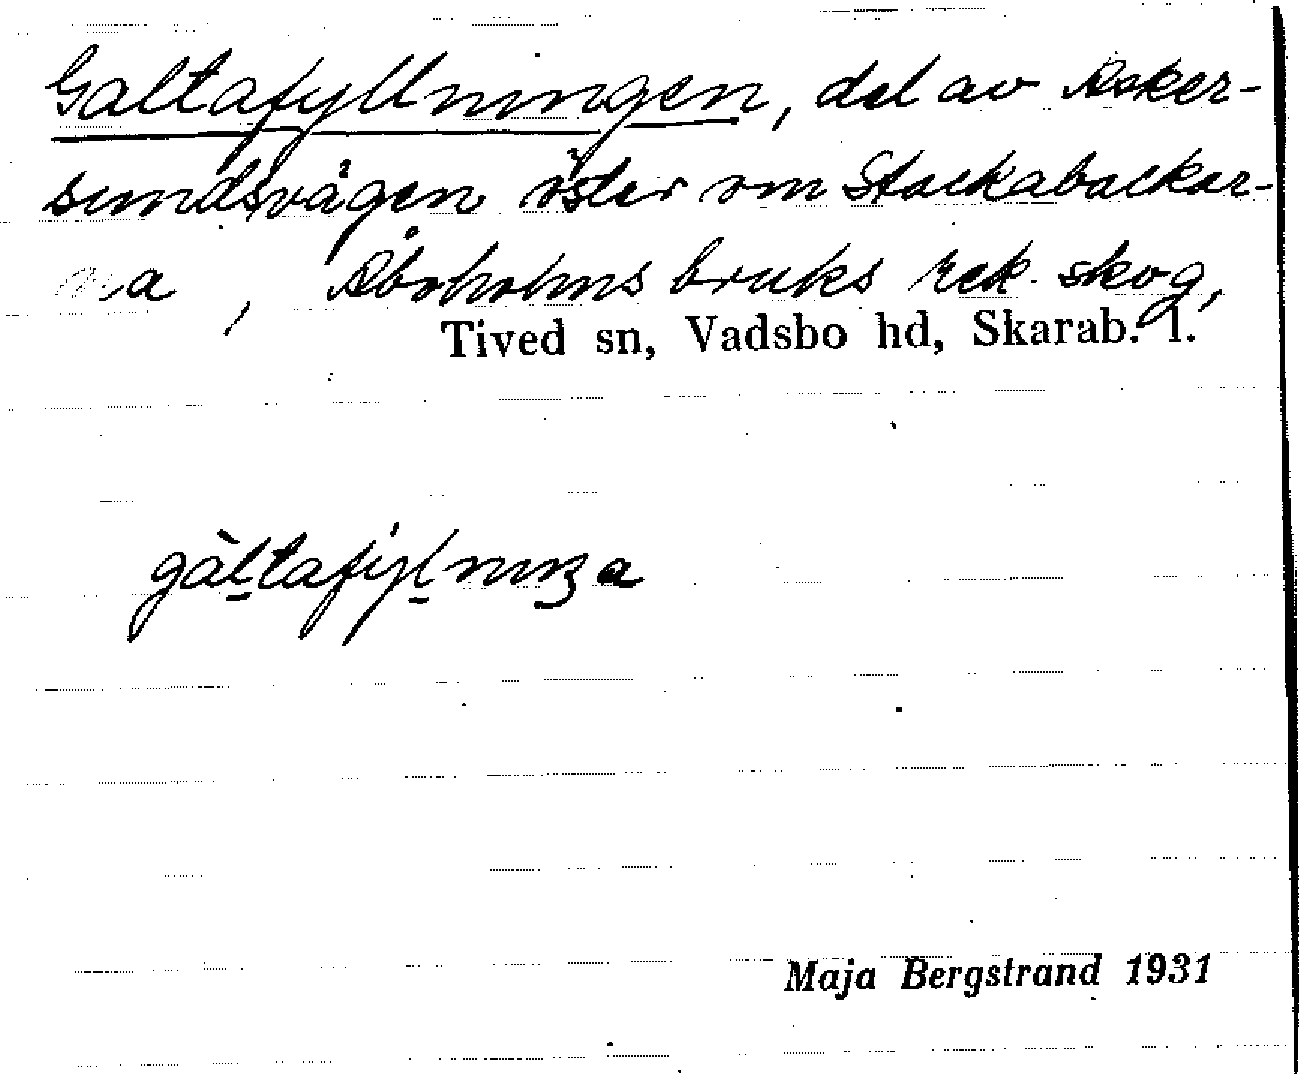 Galtafyllningen, del av Asker-
sundsvägen öster om Stackabackar-
na, Åboholms bruks rek. skog,
Tived sn, Vadsbo hd, Skarab. l.
gàltafyl
Maja Bergstrand 1931